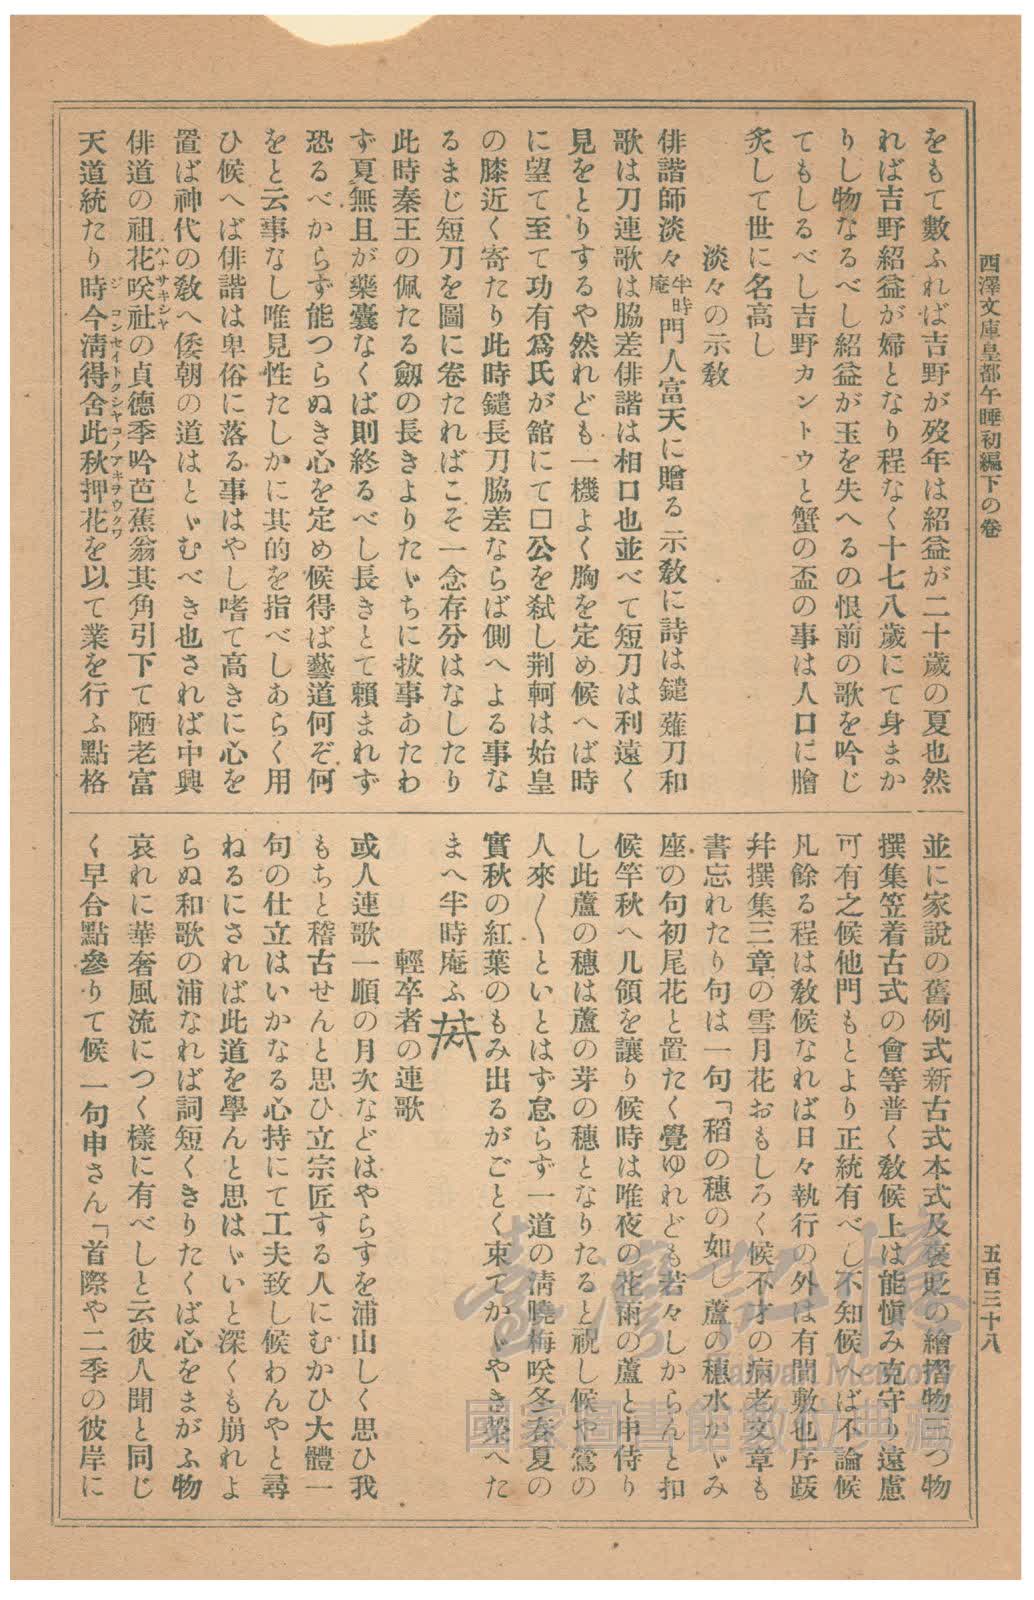 西澤文庫皇都午睡初編下の卷
五百三十八
をもて數ふれば吉野が歿年は紹益が二十歲の夏也然
れば吉野紹益が婦となり程なく十七八歲にて身まか
りし物なるべし紹益が玉を失へるの恨前の歌を吟じ
てもしるべし吉野カントウと蟹の盃の事は人口に膾
炙して世に名高し
淡々の示敎
俳諧師淡々半時庵門人富天に贈る示敎に詩は鑓薙刀和
歌は刀連歌は脇差俳諧は相口也並べて短刀は利遠く
見をとりするや然れども一機よく胸を定め候へば時
に望て至て功有爲氏が舘にて口公を弑し荆軻は始皇
の膝近く寄たり此時鑓長刀脇差ならば側へよる事な
るまじ短刀を圖に卷たればこそ一念存分はなしたり
此時秦王の佩たる劔の長きよりたゞちに拔事あたわ
ず夏無且が藥囊なくば則終るべし長きとて賴まれず
恐るべからず能つらぬき心を定め候得ば藝道何ぞ何
をと云事なし唯見性たしかに其的を指べしあらく用
ひ候へば俳諧は卑俗に落る事はやし嗜て高きに心を
置ば神代の敎へ倭朝の道はとゞむべき也されば中興
俳道の祖花咲社の貞德季吟芭蕉翁其角引下て陋老富
ハナサキシヤ
天道統たり時今淸得舍此秋押花を以て業を行ふ點格
ジコンセイトクシヤコノアキヲウクワ
並に家說の舊例式新古式本式及褒貶の繪摺物三つ物
撰集笠着古式の會等普く敎候上は能愼み克守り遠慮
可有之候他門もとより正統有べし不知候へば不論候
凡餘る程は敎候なれば日々執行の外は有間敷也序跋
幷撰集三章の雪月花おもしろく候不才の病老文章も
書忘れたり句は一句「稻の穗の如し蘆の穗水かゞみ
座の句初尾花と置たく覺ゆれども若々しからんと扣
候竿秋へ几領を讓り候時は唯夜の花雨の蘆と申侍り
し此蘆の穗は蘆の芽の穗となりたると祝し候や鶯の
人來〱といとはず怠らず一道の淸曉梅咲冬春夏の
實秋の紅葉のもみ出るがごとく東てかゞやき榮へた
まへ半時庵ふ
輕卒者の連歌
或人連歌一順の月次などはやらすを浦山しく思ひ我
もちと稽古せんと思ひ立宗匠する人にむかひ大體一
句の仕立はいかなる心持にて工夫致し候わんやと尋
ねるにされば此道を學んと思はゞいと深くも崩れよ
らぬ和歌の浦なれば詞短くきりたくば心をまがふ物
哀れに華奢風流につく樣に有べしと云彼人聞と同じ
く早合點參りて候一句申さん「首際や二季の彼岸に
臺灣記憶
Taiwan Memory
國家圖書館數位典藏